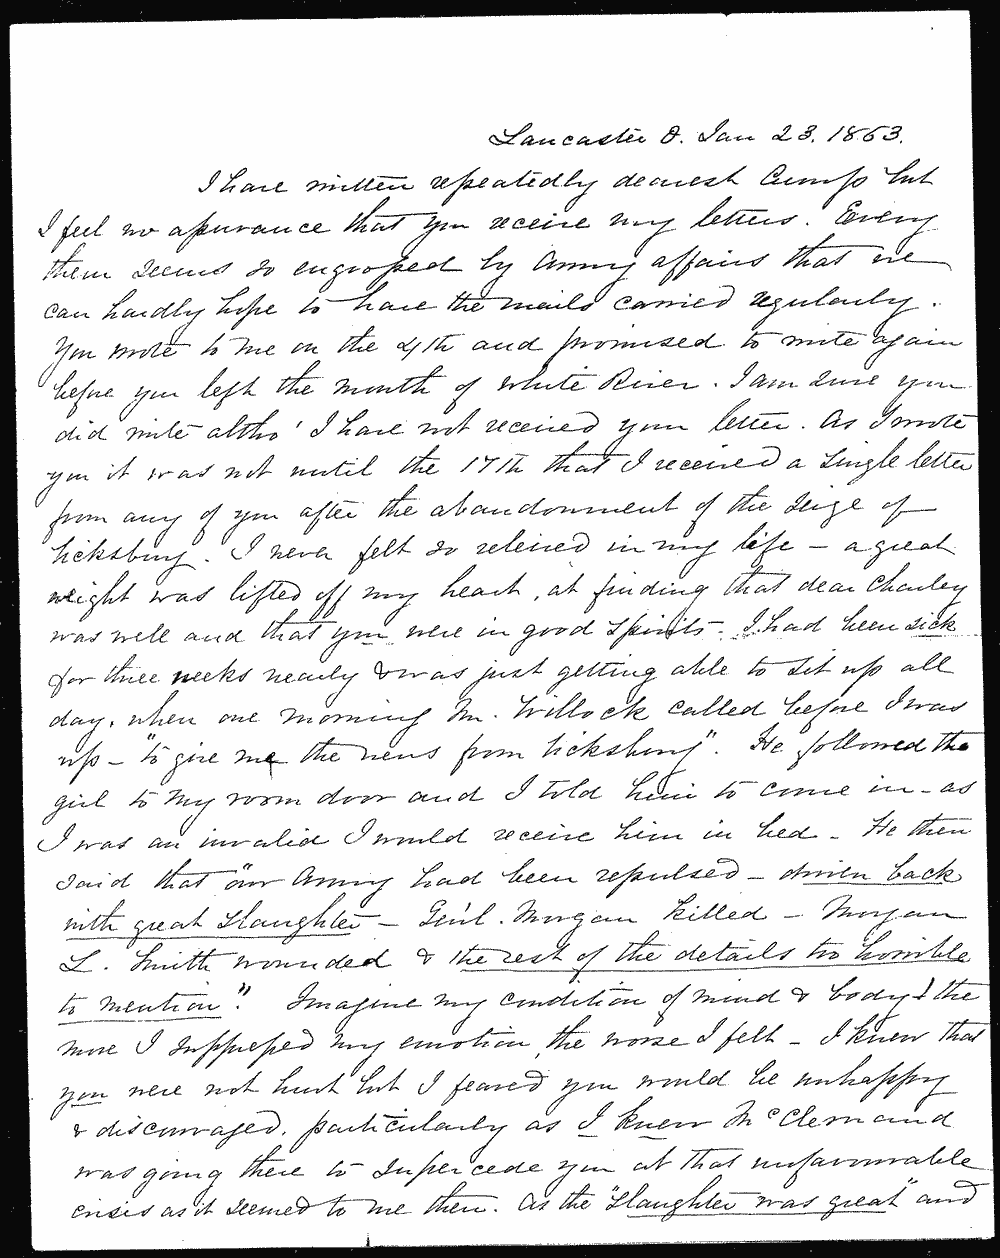 Lancaster O. Jan 23. 1863.
I have written repeatedly dearest Cump but
I feel no assurance that you receive my letters. Every
them seems so engrossed by Army affairs that we
can hardly hope to have the mails carried regularly.
You wrote to me on the 4th and promised to write again
before you left the mouth of White River. I am sure you
did write altho' I have not received your letter. As I wrote
you it was not until the 17th that I received a single letter
from any of you after the abandonment of the seige of
Vicksburg. I never felt so releived in my life - a great
weight was lifted off my heart, at finding that dear Charley
was well and that you were in good spirits - I had been sick
for three weeks nearly & was just getting able to sit up all
day, when one morning Mr. Willock called before I was
up - "to give me the news from Vicksburg". He followed the
girl to my room door and I told him to come in - as
I was an invalid I would receive him in bed - He then
said that "our Army had been repulsed - driven back
with great slaughter - Gen'l. Morgan killed - Morgan
L. Smith wounded & the rest of the details too horrible
to mention". Imagine my condition of mind & body & the
more I suppressed my emotion, the worse I felt - I knew that
you were not hurt but I feared you would be unhappy
& discouraged, particularly as I knew McClernand
was going there to supercede you at that unfavourable
crisis as it seemed to me then. As the "slaughter was great" and